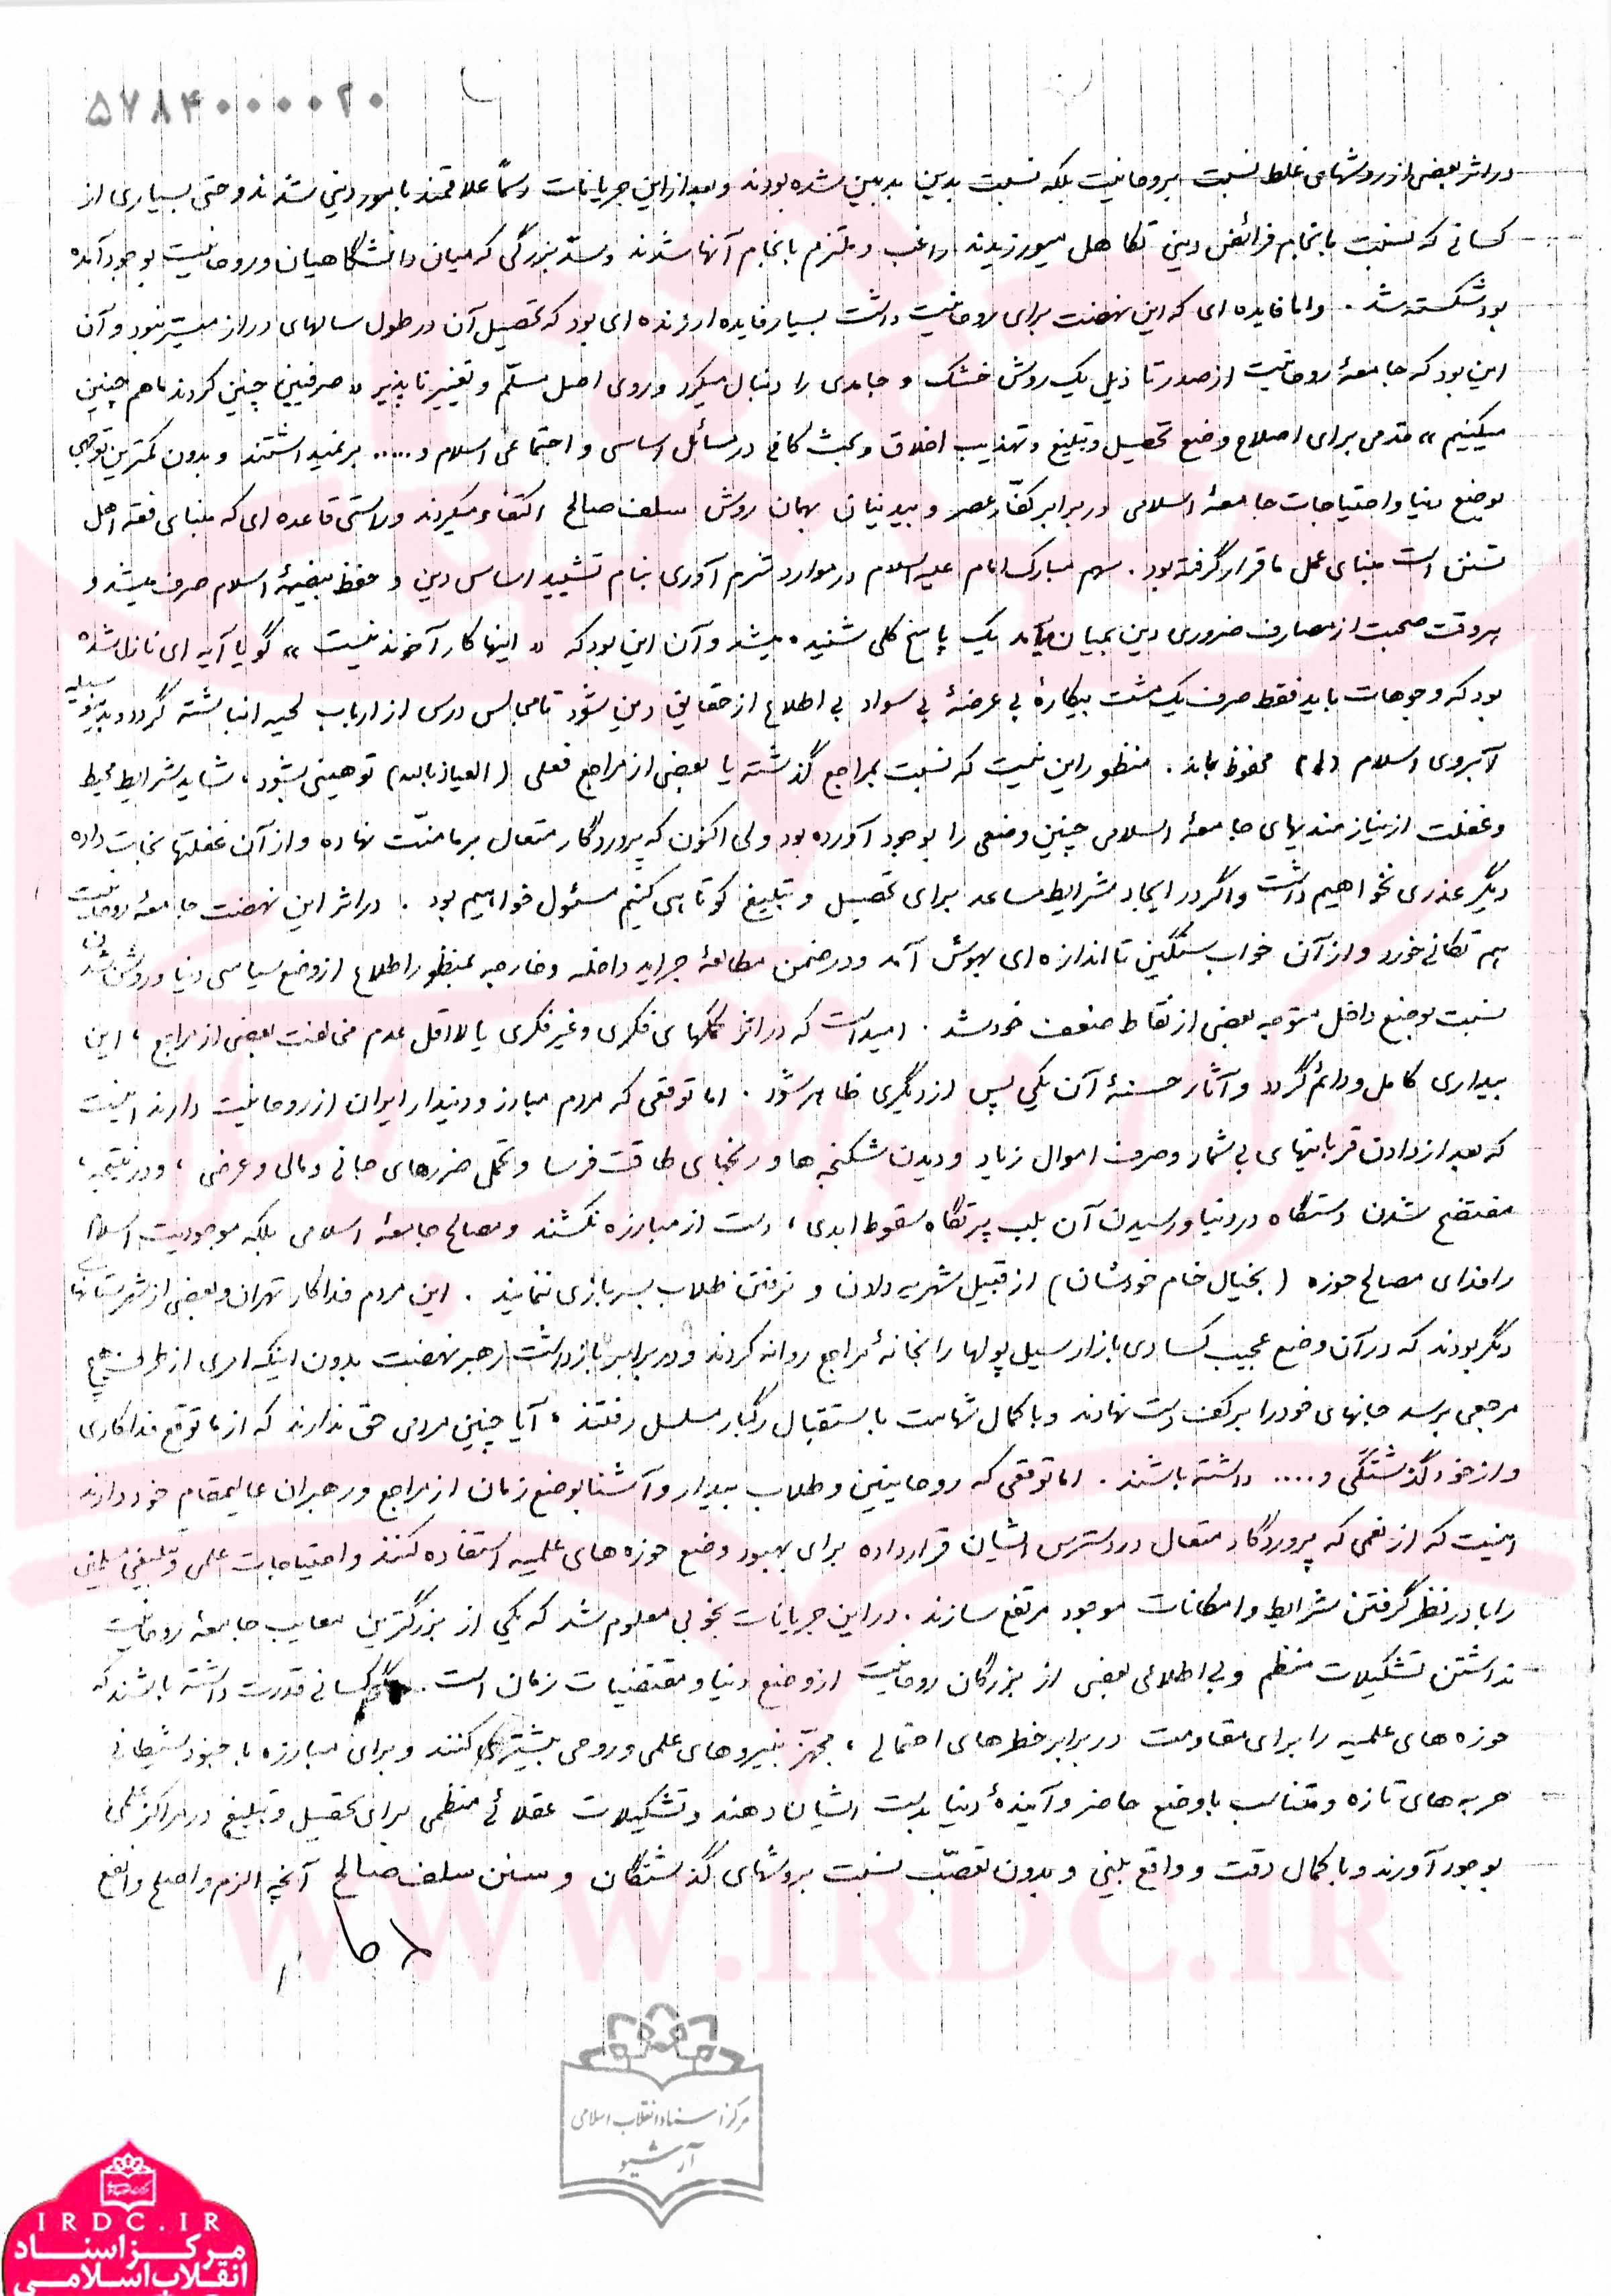 ۵۷۸۴۰۰۰۰۰۲۰
در اثر بعضی از روشهای غلط نسبت بروحانیت بلکه نسبت بدین بدبین شده بودند و بعد از این جریانات رسماً علاقمند بامور دینی شدند و حتی بسیاری از
کسانی که نسبت بانجام فرائض دینی تکاهل میورزیدند راغب و ملتزم بانجام آنها شدند و سدّ بزرگی که میان دانشگاهیان و روحانیت بوجود آمده
بود شکسته شد . و اما فایده ای که این نهضت برای روحانیت داشت بسیار فایده ارزنده ای بود که تحصیل آن در طول سالهای دراز میسر نبود و آن
این بود که جامعهٔ روحانیت از صدر تا ذیل یک روش خشک و جامدی را دنبال میکرد و روی اصل مسلّم و تغییر ناپذیر « صرفیین چنین کردند ما هم چنین
میکنیم » قدمی برای اصلاح وضع تحصیل و تبلیغ و تهذیب اخلاق و بحث کافی در مسائل اساسی و اجتماعی اسلام و ..... بر نمیداشتند و بدون کمترین توجهی
بوضع دنیا و احتیاجات جامعهٔ اسلامی در برابر کفّار عصر و بیدینان بهمان روش سلف صالح اکتفاء میکردند و راستی قاعده ای که مبنای فقه اهل
تسنن است مبنای عمل ما قرار گرفته بود . سهم مبارک امام علیه السلام در موارد شرم آوری بنام تشیید اساس دین و حفظ بیضهٔ اسلام صرف میشد و
هر وقت صحبت از مصارف ضروری دین بمیان میآمد یک پاسخ کلی شنیده میشد و آن این بود که « اینها کار آخوند نیست » گویا آیه ای نازل شده
بود که وجوهات باید فقط صرف یک مشت بیکارهٔ بی عرضهٔ بی سواد بی اطلاع از حقایق دین شود تا مجالس درس از ارباب لحیه انباشته گردد و بدینوسیله
آبروی اسلام (!) محفوظ بماند . منظور این نیست که نسبت بمراجع گذشته یا بعضی از مراجع فعلی (العیاذ بالله) توهینی بشود ، شاید شرایط محیط
و غفلت از نیازمندیهای جامعهٔ اسلامی چنین وضعی را بوجود آورده بود ولی اکنون که پروردگار متعال بر ما منّت نهاده و از آن غفلتها نجات داده
دیگر عذری نخواهیم داشت و اگر در ایجاد شرایط مساعد برای تحصیل و تبلیغ کوتاهی کنیم مسئول خواهیم بود . در اثر این نهضت جامعهٔ روحانیت
هم تکانی خورد و از آن خواب سنگین تا اندازه ای بهوش آمد و در ضمن مطالعهٔ جراید داخله و خارجه بمنظور اطلاع از وضع سیاسی دنیا و روشن شدن
نسبت بوضع داخل متوجه بعضی از نقاط ضعف خود شد . امید است که در اثر کمکهای فکری و غیر فکری یا لااقل عدم مخالفت بعضی از مراجع ، این
بیداری کامل و دائم گردد و آثار حسنهٔ آن یکی پس از دیگری ظاهر شود . اما توقعی که مردم مبارز و دیندار ایران از روحانیت دارند اینست
که بعد از دادن قربانیهای بی شمار و صرف اموال زیاد و دیدن شکنجه ها و رنجهای طاقت فرسا و تحمل ضررهای جانی و مالی و عرضی ، و در نتیجه ،
مفتضح شدن دستگاه در دنیا و رسیدن آن بلب پرتگاه سقوط ابدی ، دست از مبارزه نکشند و مصالح جامعهٔ اسلامی بلکه موجودیت اسلام
را فدای مصالح حوزه (بخیال خام خودشان) از قبیل شهریه دادن و نرفتن طلاب بسربازی ننمایند . این مردم فداکار تهران و بعضی از شهرستانهای
دیگر بودند که در آن وضع عجیب کسادی بازار سیل پولها را بخانهٔ مراجع روانه کردند و در برابر بازداشت رهبر نهضت بدون اینکه امری از طرف هیچ
مرجعی برسد جانهای خود را بر کف دست نهادند و با کمال شهامت باستقبال رگبار مسلسل رفتند ، آیا چنین مردمی حق ندارند که از ما توقع فداکاری
و از خود گذشتگی و .... داشته باشند . اما توقعی که روحانیین و طلاب بیدار و آشنا بوضع زمان از مراجع و رهبران عالیمقام خود دارند
اینست که از نعمی که پروردگار متعال در دسترس ایشان قرار داده برای بهبود وضع حوزه های علمیه استفاده کنند و احتیاجات علمی و تبلیغی مسلمین
را با در نظر گرفتن شرایط و امکانات موجود مرتفع سازند . در این جریانات بخوبی معلوم شد که یکی از بزرگترین معایب جامعهٔ روحانیت
نداشتن تشکیلات منظم و بی اطلاعی بعضی از بزرگان روحانیت از وضع دنیا و مقتضیات زمان است . کسانی قدرت داشته باشند که
حوزه های علمیه را برای مقاومت در برابر خطرهای احتمالی ، مجهّز بنیروهای علمی و روحی بیشتری کنند و برای مبارزه با جنود شیطانی
حربه های تازه و متناسب با وضع حاضر و آیندهٔ دنیا بدست ایشان دهند و تشکیلات عقلائی منظمی برای تحصیل و تبلیغ در مراکز علمی
بوجود آورند و با کمال دقت و واقع بینی و بدون تعصّب نسبت بروشهای گذشتگان و سنن سلف صالح آنچه الزم و اصلح و انفع
WWW.IRDC.IR
مرکز اسناد انقلاب اسلامی
آرشیو
IRDC.IR
مرکز اسناد
انقلاب اسلامی